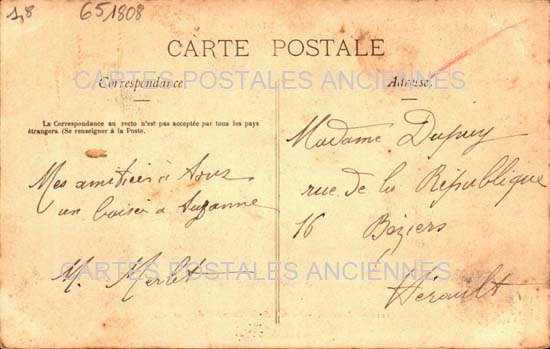 1,8 651808
CARTE POSTALE
CARTES POSTALES ANCIENNES
Correspondance
Adresse
La Correspondance au recto n'est pas acceptée par tous les pays
étrangers. (Se renseigner à la Poste.
Mes amitiés à tous
un baiser à Suzanne
M. Merlet
Madame Dupuy
rue de la République
16 Béziers
Hérault
CARTES POSTALES ANCIENNES